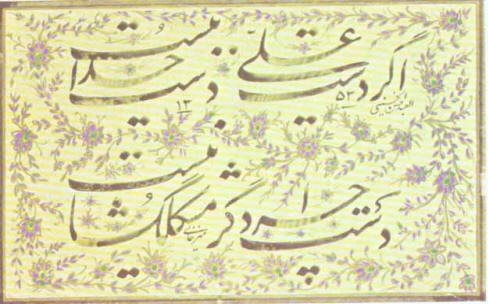 اگر دست علی دست خدا نیست
۱۳ ۵۲
چرا دست دگر مشکل‌گشا نیست